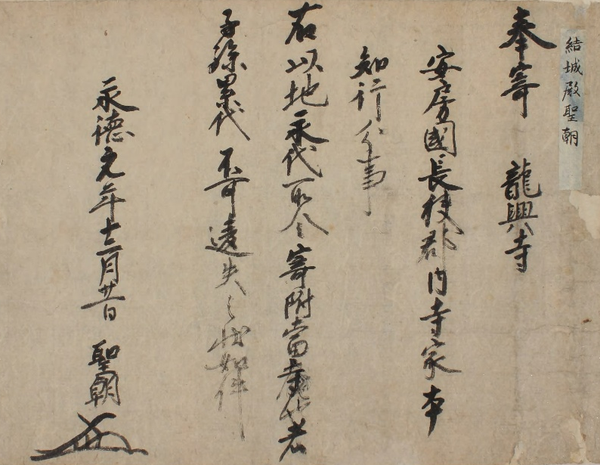 結城殿聖朝
奉寄 龍興寺
安房國長狭郡内寺家本
知行分事
右以地永代所令寄附當寺也者
子孫累代不可違失之状如件
永徳元年十二月廿日 聖朝